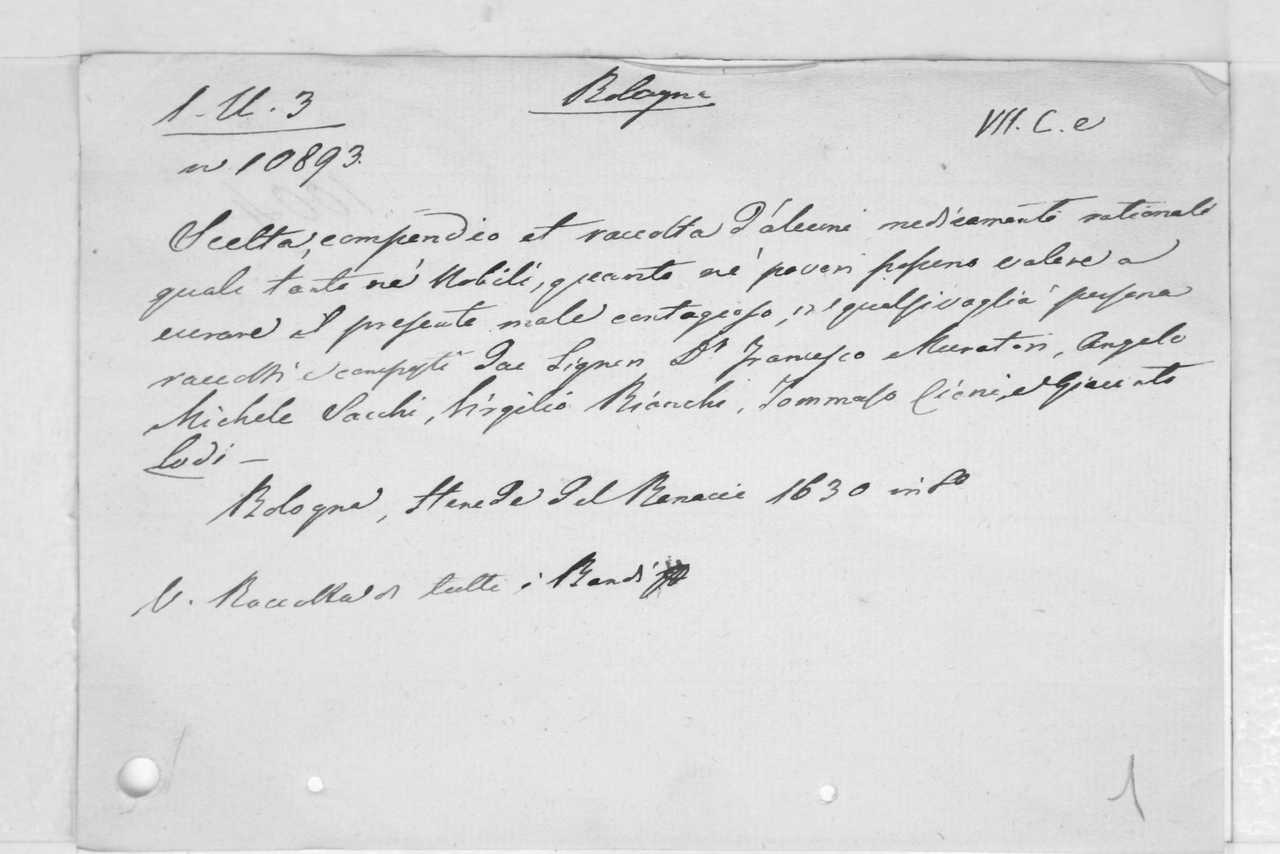 1-U.3
Bologna
VII.C.e
n 10893.
Scelta, compendio et raccolta d'alcuni medicamenti rationali
quali tanto ne' Nobili, quanto ne' poveri possino valere a
curare il presente male contagioso, in qualsivoglia persona
raccolti e composti dai Signori Dri Francesco Muratori, Angelo
Michele Sacchi, Virgilio Bianchi, Tommaso Cioni, e Giacinto
Lodi -
Bologna, Herede del Benacci 1630 in fo
V. Raccolta di tutti i Bandi
1